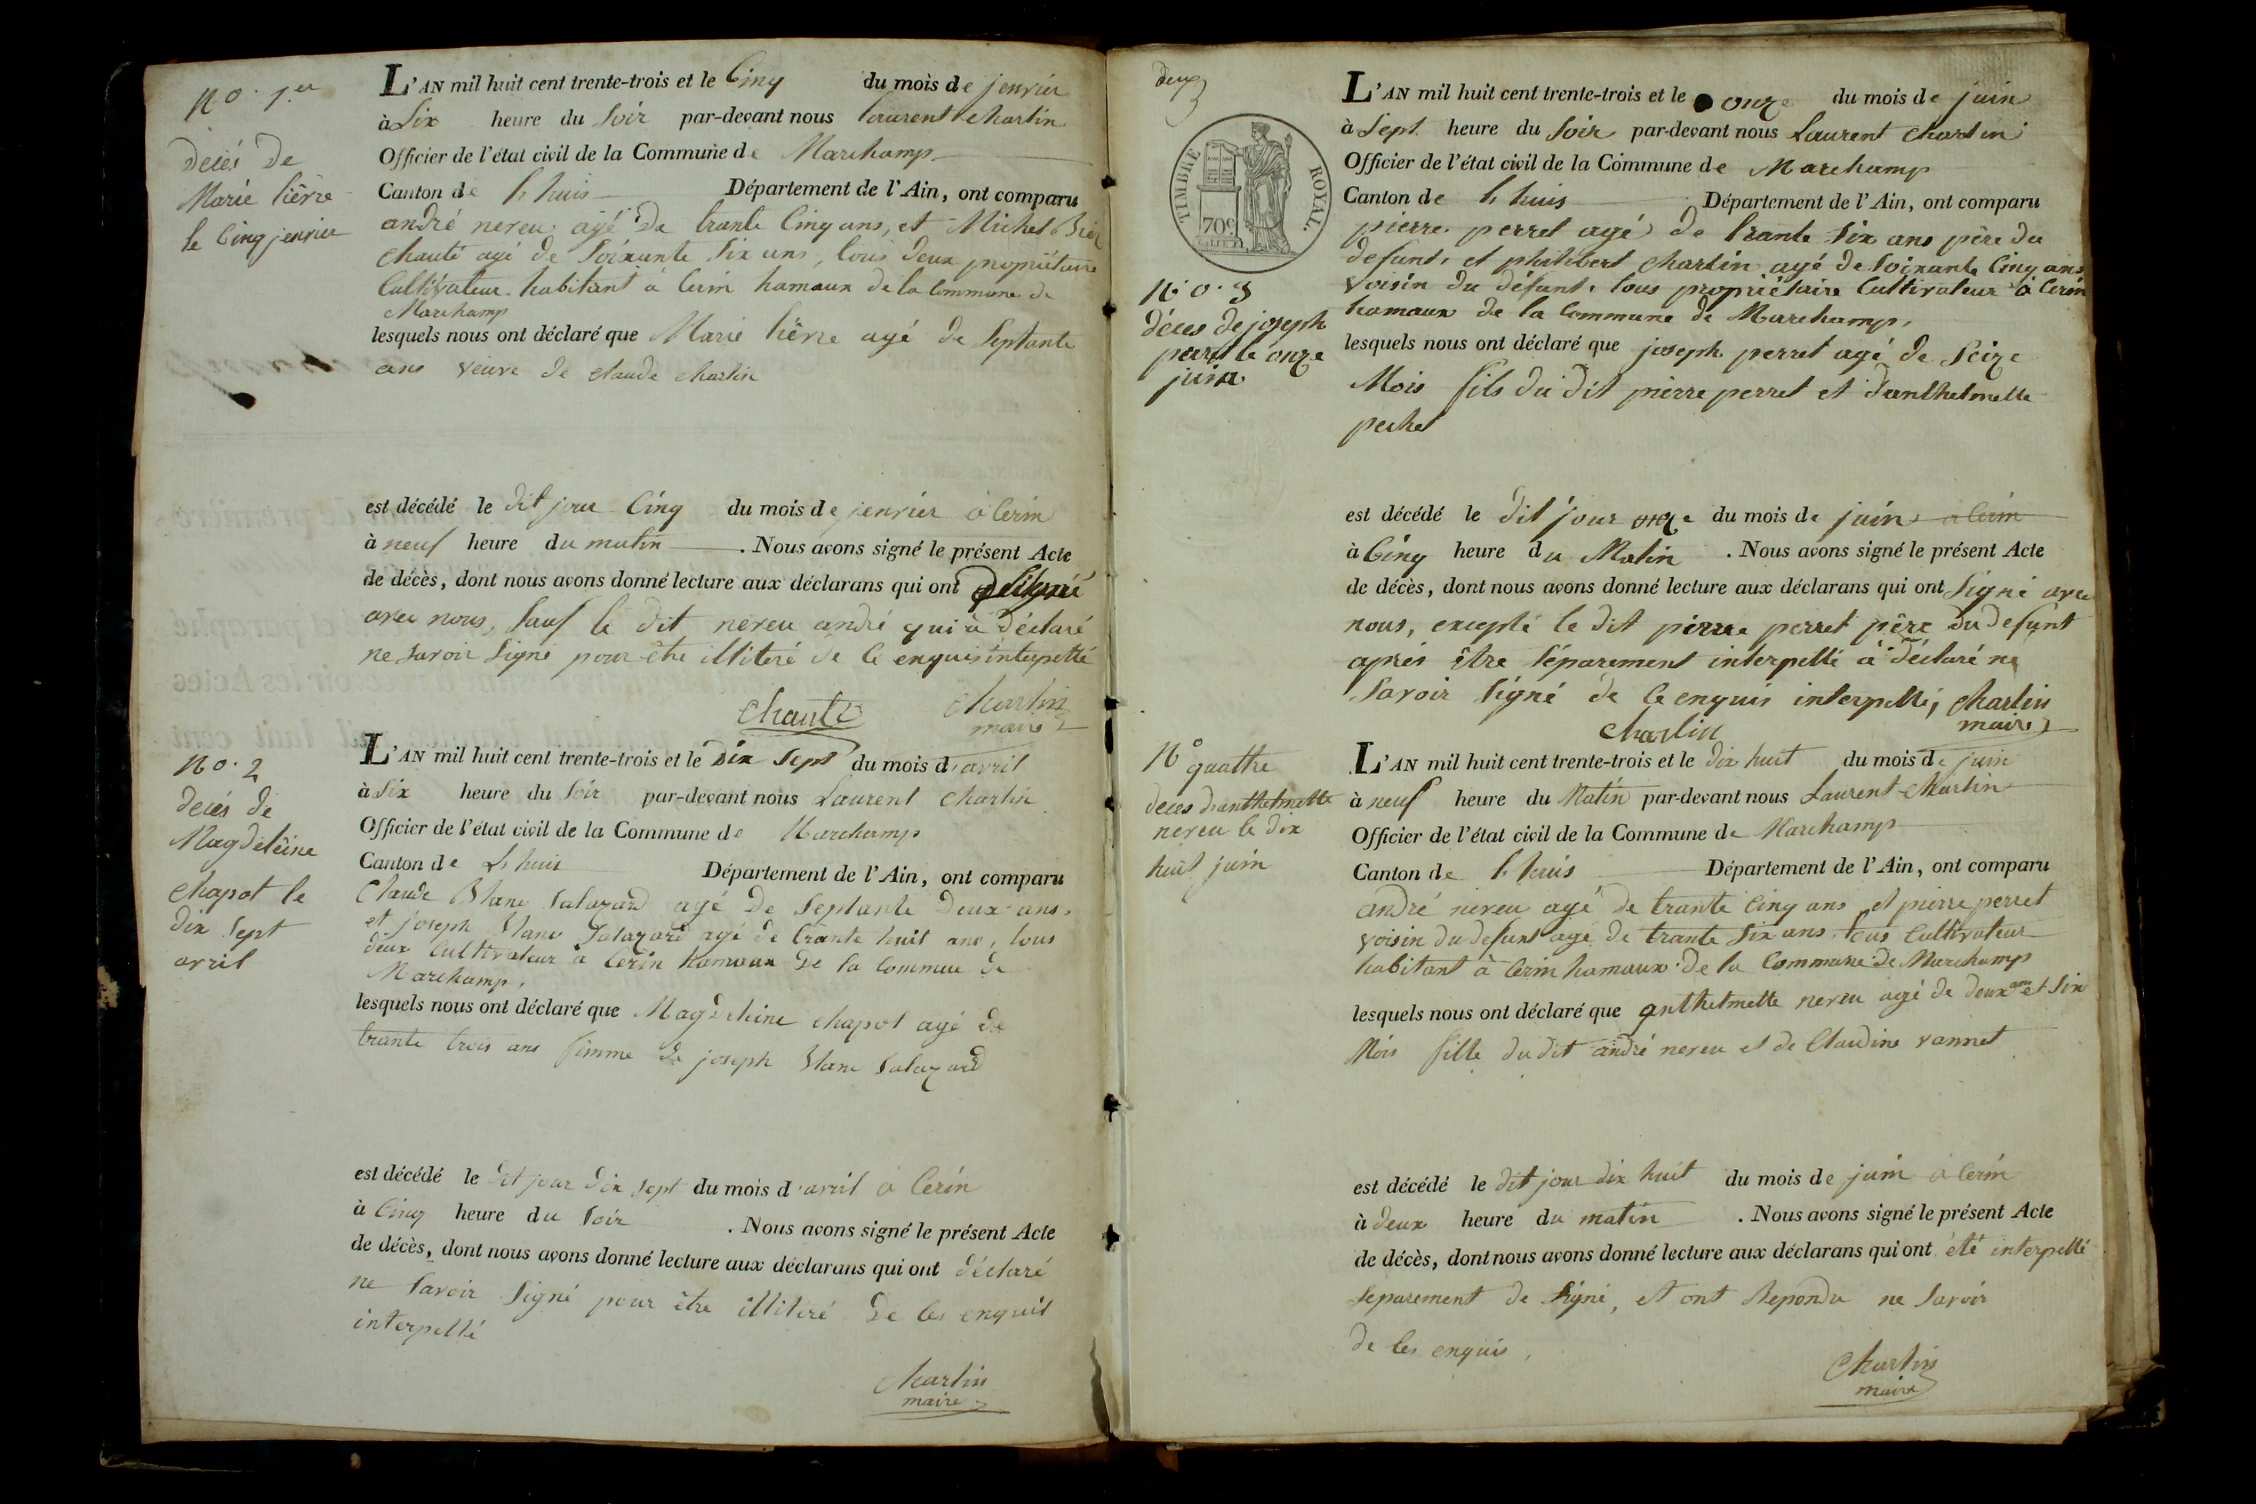 No. 1.er
decés de
Marie lièvre
le Cinq jenvier
L'AN mil huit cent trente-trois et le Cinq du mois de jenvier
à Six heure du Soir par-devant nous Laurent Charlin
Officier de l'état civil de la Commune de Marchamp
Canton de Lhuis Département de l'Ain, ont comparu
andré nereu agé de trante Cinq ans, et Michel
Chanté agé de Soixante Six ans, tous deux propriétaire
Cultivateur habitant à Cerin hamaux de la Commune de
Marchamp
lesquels nous ont déclaré que Marie lièvre agé de Septante
ans veuve de Claude Charlin
est décédé le dit jour Cinq du mois de jenvier à Cerin
à neuf heure du matin . Nous avons signé le présent Acte
de décès, dont nous avons donné lecture aux déclarans qui ont Signé
avec nous, Sauf le dit nereu andré qui à déclaré
ne Savoir Signé pour être illiteré de Ce enquis interpellé
Chanté
Charlin
maire
No. 2
decés de
Magdeleine
Chapot le
dix Sept
avril
L'AN mil huit cent trente-trois et le dix Sept du mois d'avril
à Six heure du Soir par-devant nous Laurent Charlin
Officier de l'état civil de la Commune de Marchamp
Canton de Lhuis Département de l'Ain, ont comparu
Claude Blanc Salazard agé de Septante deux ans.
et joseph Blanc Salazard agé de trante huit ans, tous
deux Cultivateur à Cerin hamaux de la Commue de
Marchamp,
lesquels nous ont déclaré que Magdeleine Chapot agé de
trante trois ans femme de joseph Blanc Salazard
est décédé le dit jour dix sept du mois d'avril à Cerin
à Cinq heure du Soir . Nous avons signé le présent Acte
de décès, dont nous avons donné lecture aux déclarans qui ont déclaré
ne Savoir Signé pour être illiteré de Ces enquit
interpellé
Charlin
maire
deux
TIMBRE ROYAL
70c
No. 3
déces de joseph
perret le onze
juin
L'AN mil huit cent trente-trois et le onze du mois de juin
à Sept heure du Soir par-devant nous Laurent Charlin
Officier de l'état civil de la Commune de Marchamp
Canton de Lhuis Département de l'Ain, ont comparu
pierre perret agé de trante Six ans père du
defunt, et philibert Charlin agé de Soixante Cinq ans
voisin du défunt, tous propriétaire Cultivateur à Cerin
hamaux de la Commune de Marchamp,
lesquels nous ont déclaré que joseph perret agé de Seize
Mois fils du dit pierre perret et d'anthelmette
pechet
est décédé le dit jour onze du mois de juin à Cerin
à Cinq heure du Matin . Nous avons signé le présent Acte
de décès, dont nous avons donné lecture aux déclarans qui ont Signé avec
nous, excepté le dit pierre perret père du defunt
aprés être Séparement interpellé à déclaré ne
Savoir Signé de Ce enquis interpellé,
Charlin
maire
Charlin
No quathe
deces d'anthelmette
nereu le dix
huit juin
L'AN mil huit cent trente-trois et le dix huit du mois de juin
à neuf heure du Matin par-devant nous Laurent Charlin
Officier de l'état civil de la Commune de Marchamp
Canton de Lhuis Département de l'Ain, ont comparu
andré nereu agé de trante Cinq ans et pierre perret
voisin du defunt agé de trante Six ans tous Cultivateur
habitant à Cerin hamaux de la Commune de Marchamp
lesquels nous ont déclaré que anthelmette nereu agé de deux ans et Six
Mois fille du dit andré nereu et de Claudine vannet
est décédé le dit jour dix huit du mois de juin à Cerin
à deux heure du matin . Nous avons signé le présent Acte
de décès, dont nous avons donné lecture aux déclarans qui ont été interpellé
Separement de Signé, et ont Repondu ne Savoir
de Ces enquis,
Charlin
maire